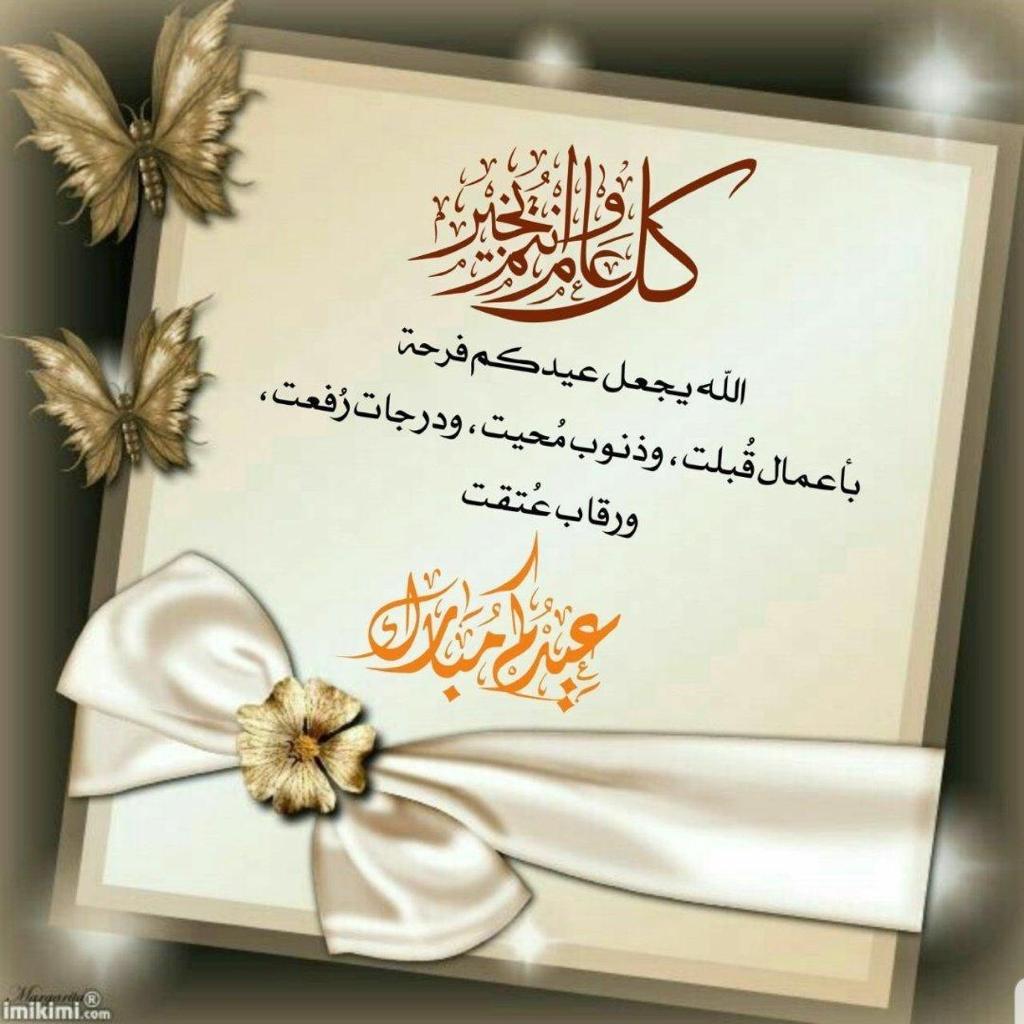 كل عام وانتم بخير
الله يجعل عيدكم فرحة
بأعمال قُبلت، وذنوب مُحيت، ودرجات رُفعت،
ورقاب عُتقت
عيدكم مبارك
Margarita®
imikimi.com